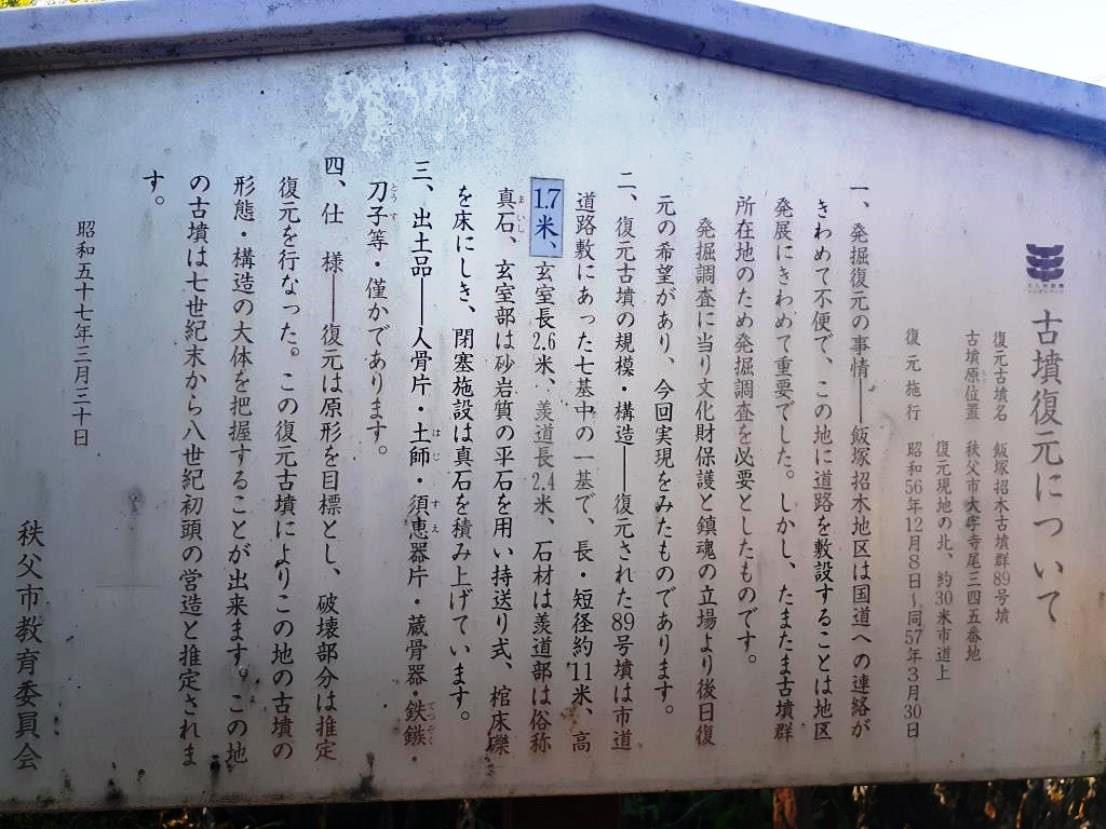 古墳復元について
復元古墳名　飯塚招木古墳群89号墳
古墳原位置　秩父市大字寺尾三四五番地
復元現地の北、約30米市道上
復元施行　昭和56年12月8日〜同57年3月30日
一、発掘復元の事情――飯塚招木地区は国道への連絡が
きわめて不便で、この地に道路を敷設することは地区
発展にきわめて重要でした。しかし、たまたま古墳群
所在地のため発掘調査を必要としたものです。
発掘調査に当り文化財保護と鎮魂の立場より後日復
元の希望があり、今回実現をみたものであります。
二、復元古墳の規模・構造――復元された89号墳は市道
道路敷にあった七基中の一基で、長・短径約11米、高
1.7米、玄室長2.6米、羨道長2.4米、石材は羨道部は俗称
真石、玄室部は砂岩質の平石を用い持送り式、棺床礫
を床にしき、閉塞施設は真石を積み上げています。
三、出土品――人骨片・土師・須恵器片・蔵骨器・鉄鏃・
刀子等・僅かであります。
四、仕　様――復元は原形を目標とし、破壊部分は推定
復元を行なった。この復元古墳によりこの地の古墳の
形態・構造の大体を把握することが出来ます。この地
の古墳は七世紀末から八世紀初頭の営造と推定されま
す。
昭和五十七年三月三十日
秩父市教育委員会